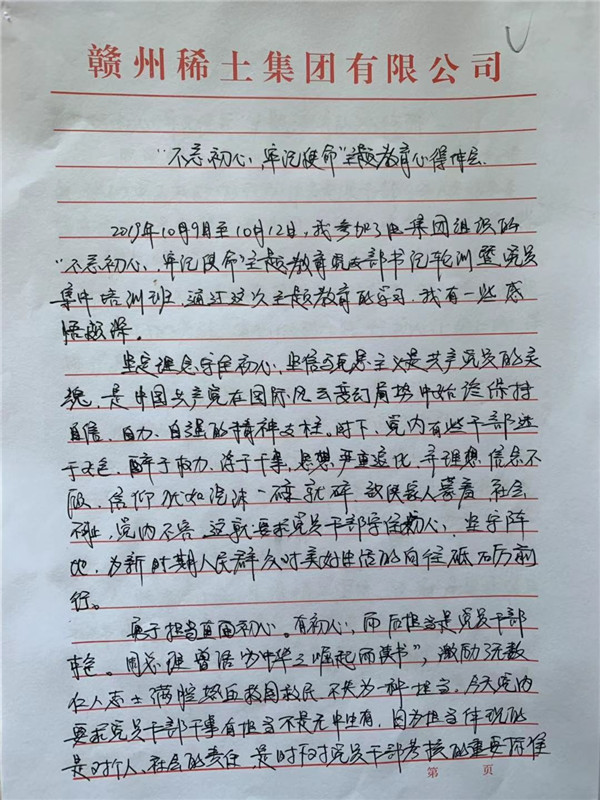 赣州稀土集团有限公司
“不忘初心、牢记使命”主题教育心得体会
2019年10月9日至10月12日,我参加了由集团组织的
“不忘初心、牢记使命”主题教育党支部书记轮训暨党员
集中培训班,通过这次主题教育的学习,我有一些感
悟颇深。
坚定理念守住初心。坚信马克思主义是共产党员的灵
魂,是中国共产党在国际风云变幻局势中始终保持
自信、自力、自强的精神支柱。时下,党内有些干部迷
于声色、醉于权力、思想严重退化,弃理想、信念不
顾,信仰犹如泡沫一碰就碎,社会
不耻,党内不容。这就要求党员干部守住初心,坚守阵
地,为新时期人民群众对美好生活的向往砥砺前
行。
勇于担当直面初心。有初心,而后担当是党员干部
本色。周总理曾语“为中华之崛起而读书”,激励了无数
仁人志士满腔热血救国救民,不失为一种担当。今天党内
要求党员干部干事有担当不是无中生有,因为担当体现的
是对个人、社会的责任,是时下对党员干部考核的重要标准
第 页